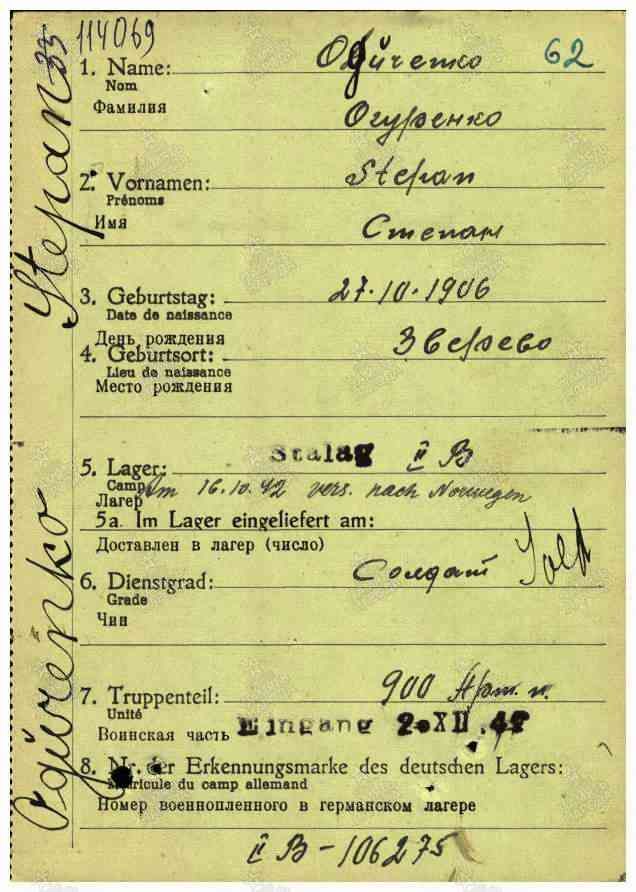 114069
62
1. Name: Ogurenko
Nom
Фамилия
Огуренко
2. Vornamen: Stepan
Prénoms
Имя
Степан
3. Geburtstag: 27.10.1906
Date de naissance
День рождения
4. Geburtsort: Зверево
Lieu de naissance
Место рождения
5. Lager: Stalag II B
Camp
Лагер
Am 16.10.42 vers. nach Norwegen
5a. Im Lager eingeliefert am:
Доставлен в лагер (число)
6. Dienstgrad: Солдат Sold
Grade
Чин
7. Truppenteil: 900 Арт. п.
Unité
Воинская часть
Eingang 2. XII. 42
8. Nr. der Erkennungsmarke des deutschen Lagers:
Matricule du camp allemand
Номер военнопленного в германском лагере
II B - 106275
Ogurenko Stepan